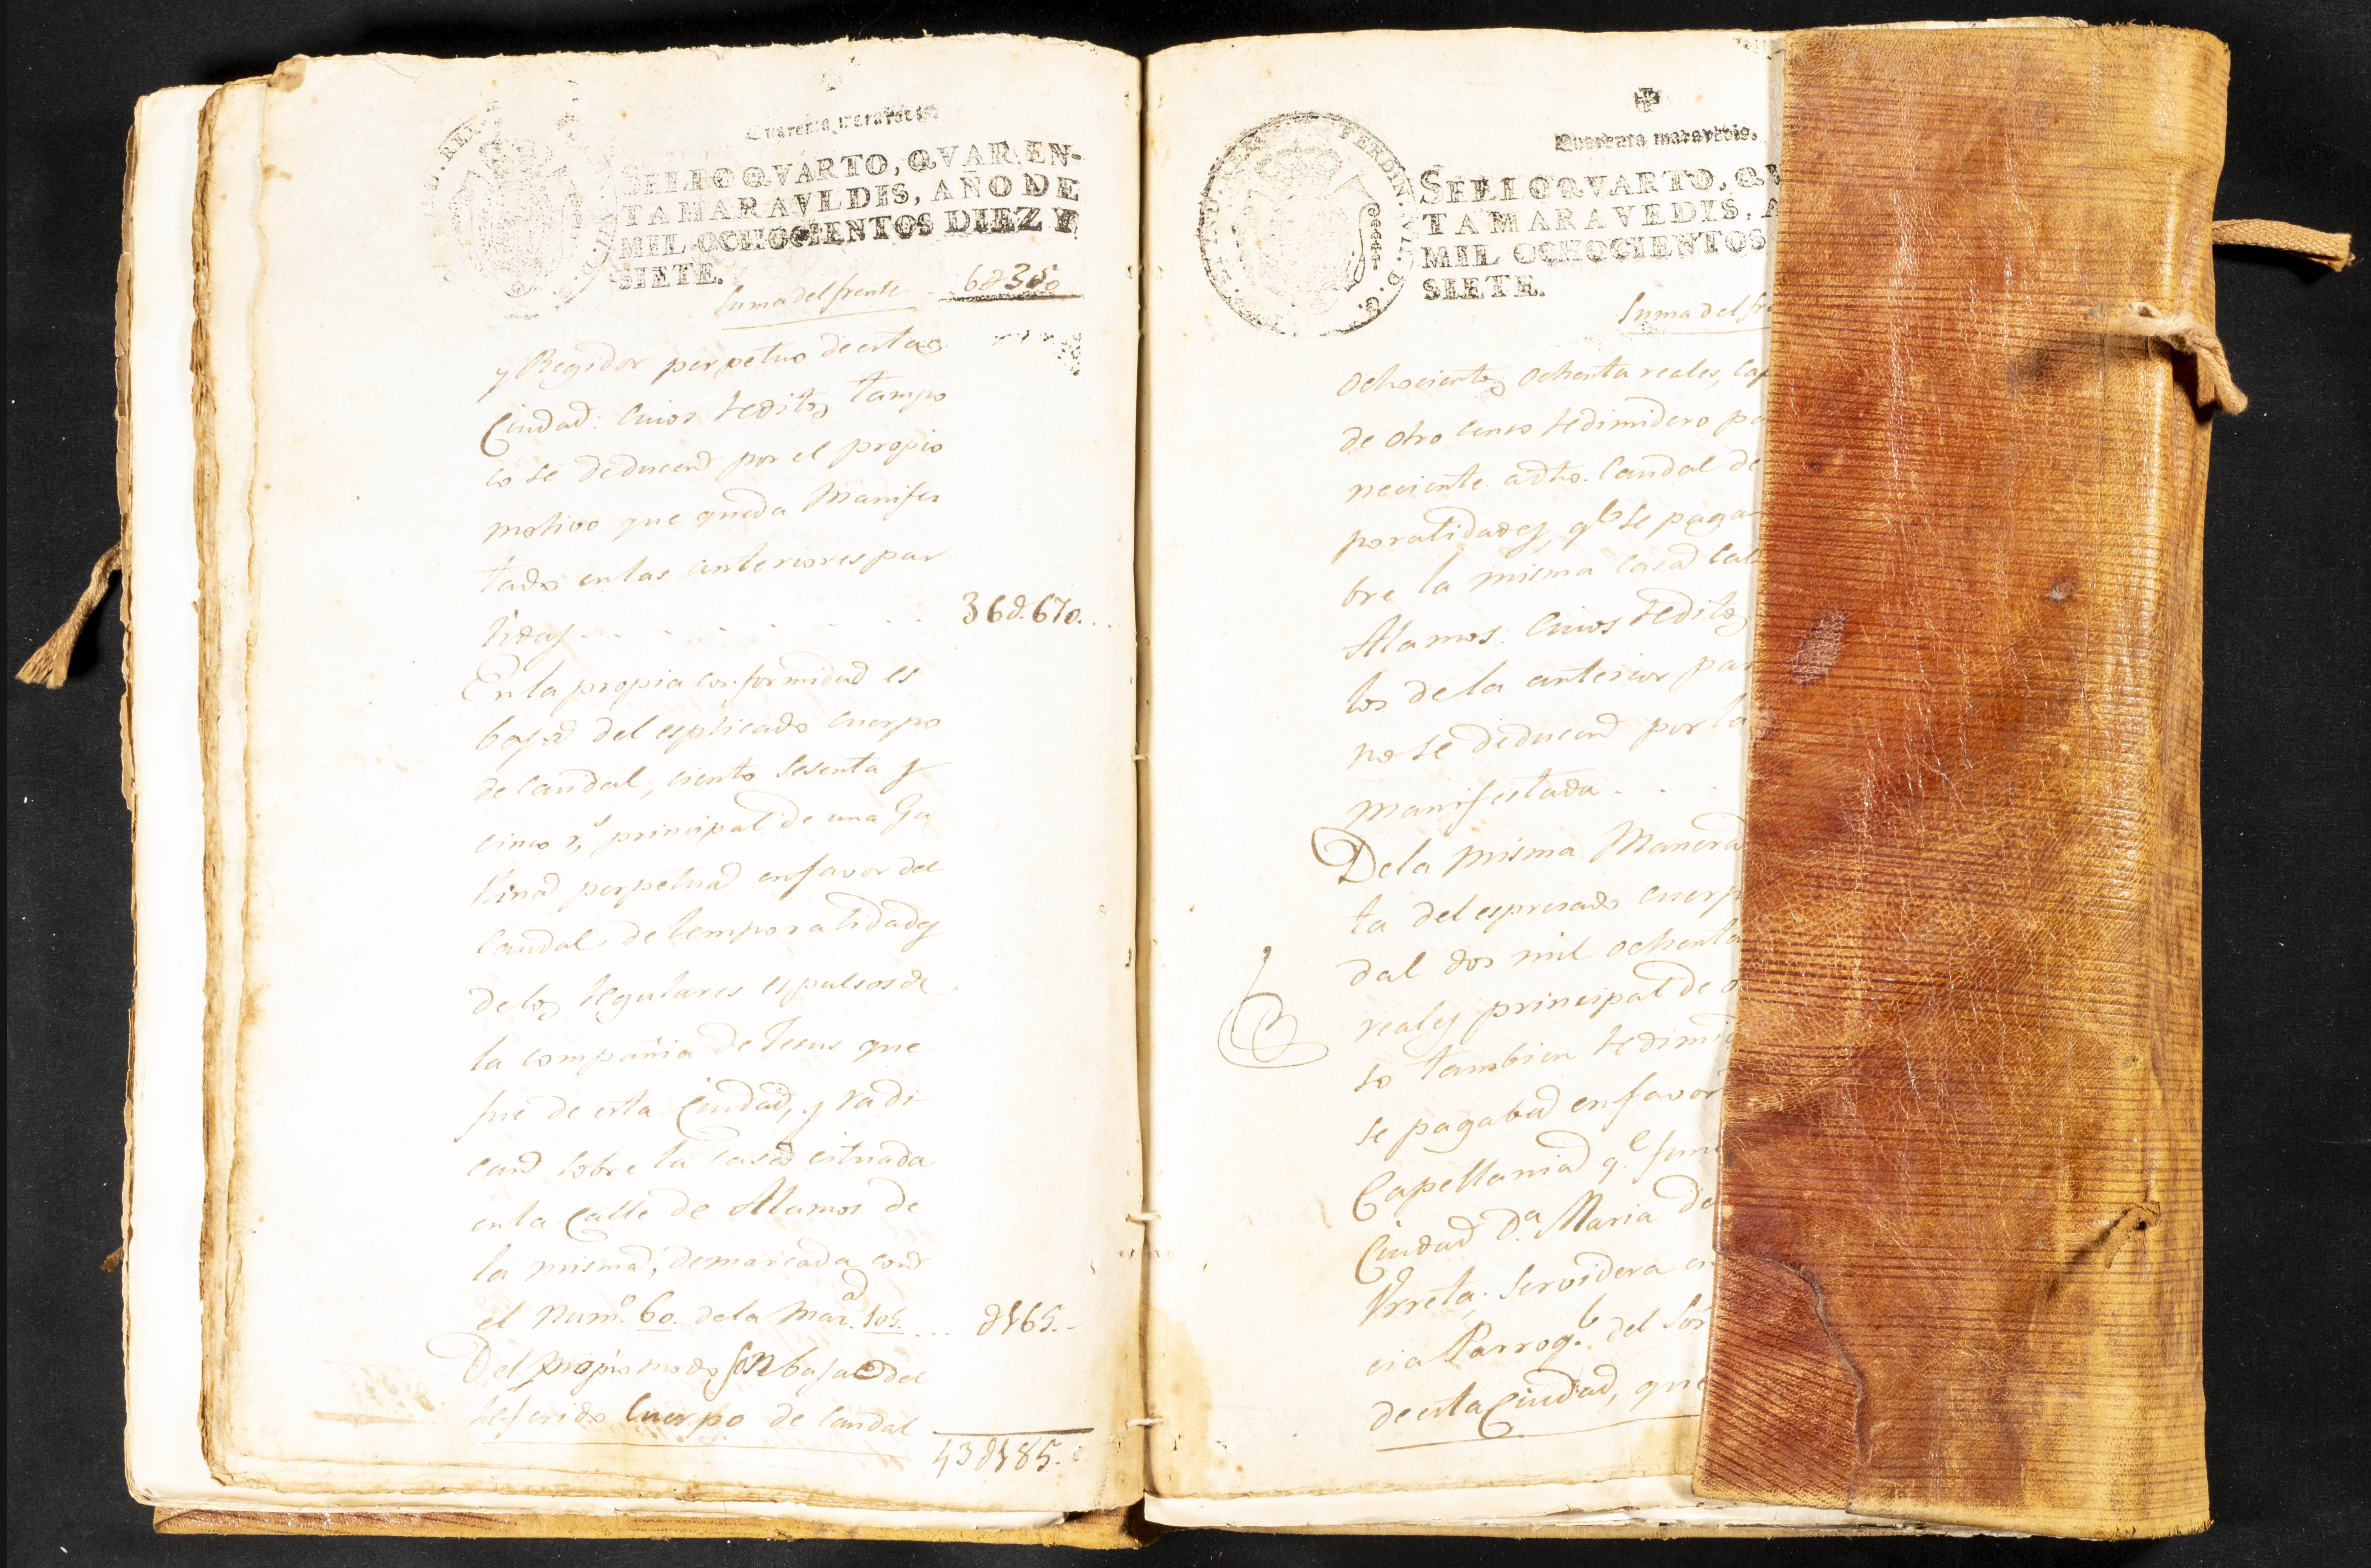 Quarenta maravedis.
SELLO QVARTO, QVAREN-
TA MARAVEDIS, AÑO DE
MIL OCHOCIENTOS DIEZ Y
SIETE.
Suma del frente 6∂350
y Regidor perpetuo de esta
Ciudad: cuios reditos tampo
co se deducen por el propio
motivo que queda Manifes
tado en las anteriores par
tidas 36∂.670.
En la propia conformidad es
baja del esplicado cuerpo
de caudal, ciento sesenta y
cinco r.s principal de una Ga
llina perpetua en favor del
Caudal de temporalidades
de los regulares espulsos de
la compañia de Jesus que
fue de esta Ciudad, y radi-
can sobre la casa cituada
en la Calle de Alamos de
la misma, demarcada con
el Num.o 60. de la Man.a 105. ∂165.
Del propio modo son baja del
referido Cuerpo de Caudal
43∂185.
FERDIN.
Quarenta maravedis.
SELLO QVARTO, QV
TA MARAVEDIS, A
MIL OCHOCIENTOS
SIETE.
Suma del fre
ochocientos ochenta reales, cap
de otro censo redimidero pe
neciente a dho. Caudal de
poralidades q.e se pagan
bre la misma casa cal
Alamos: cuios reditos
los de la anterior par
no se deducen por la
manifestada.
De la misma Manera
ta del espresado cuerp
dal dos mil ochenta
reales principal de o
so tambien redimi
se pagaba en favor
Capellania q.e fun
Ciudad D.a Maria de
Urreta: servidera en
cia Parroq.l del
de esta Ciudad, que